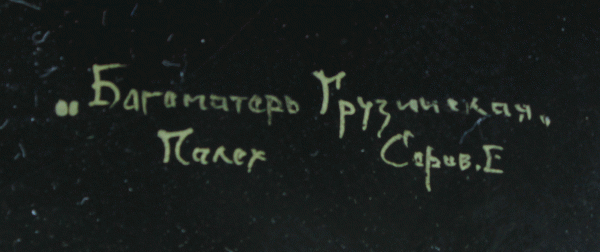 „Богоматерь Грузинская„
Палех Серов.Е